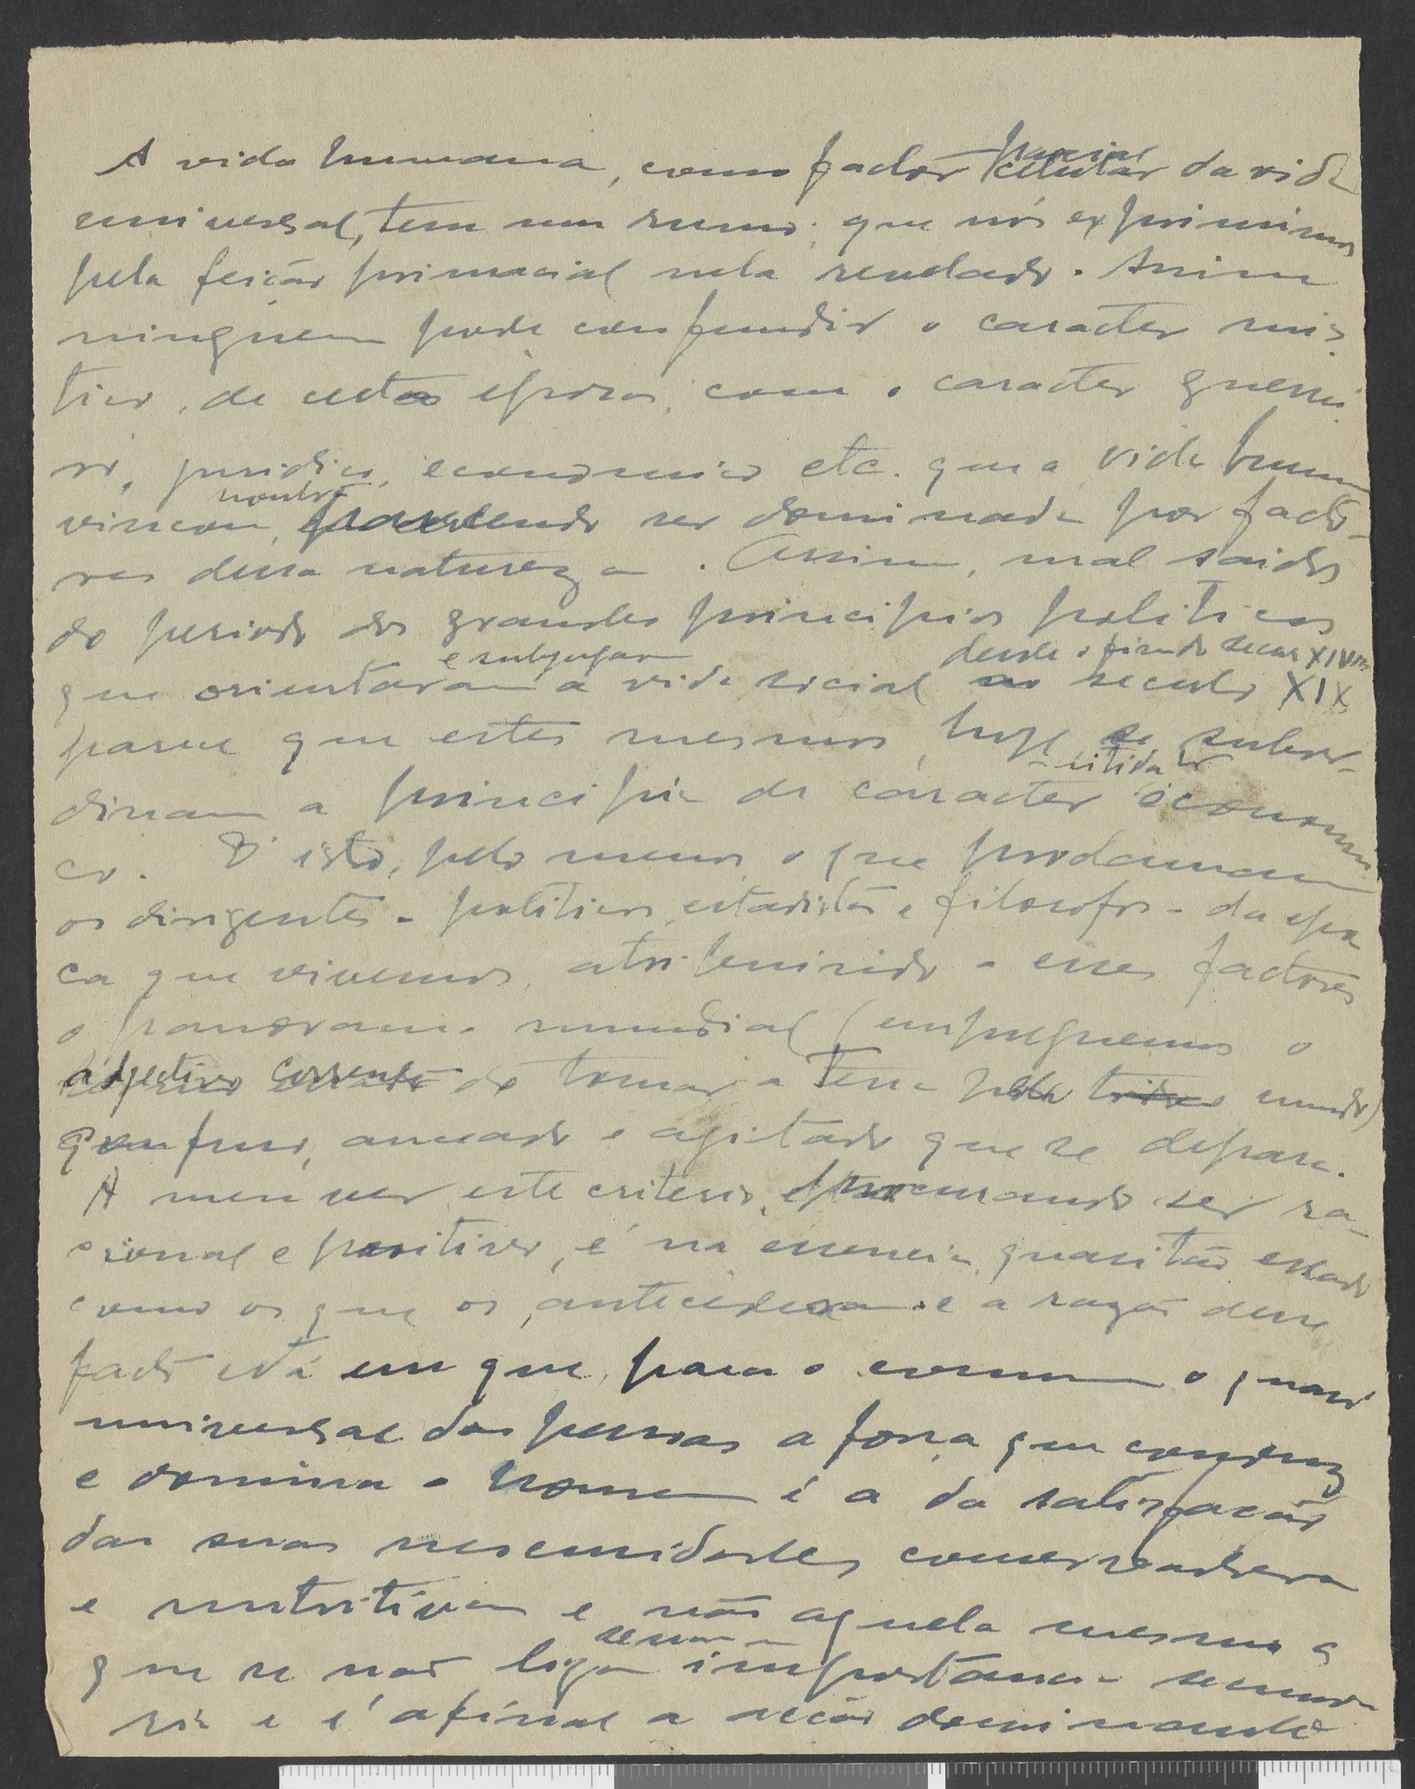 A vida humana, como factor parcial celular da vida
universal, tem um rumo que nós exprimimos
pela feição primacial nela revelado. Assim
ninguem pode confundir o caracter mis-
tico, de certas épocas, com o caracter guerrei-
ro, juridico, economico etc. que a vida humana
vincou, noutras ser dominada por facto-
res dessa natureza. Assim, mal saidos
do periodo dos grandes principios politicos
e subjugaram desde o fim do seculo XVIII
que orientaram a vida social no seculo XIX
parece que estes mesmos, hoje se subor-
dinam a principio de caracter economi-
co. É isto, pelo menos, o que proclamam
os dirigentes - politicos, estadistas e filosofos - da epo-
ca que vivemos, atribuindo a esses factores
o panorama mundial (empreguemos o
adjectivo corrente de tomar a Terra pelo mundo)
confuso, ameaçado e agitado que se depara.
A meu ver este criterio, procurando ser ra-
cional e positivo, é na essencia, quasi tão errado
como os que os antecederam e a razão desse
facto está em que, para o comum o quasi
universal das pessoas a força que conduz
e domina o homem é a da satisfação
das suas necessidades conservadora
e nutritiva e não aquela mesmo a
que se não liga importancia
ria e é afinal a acção dominante